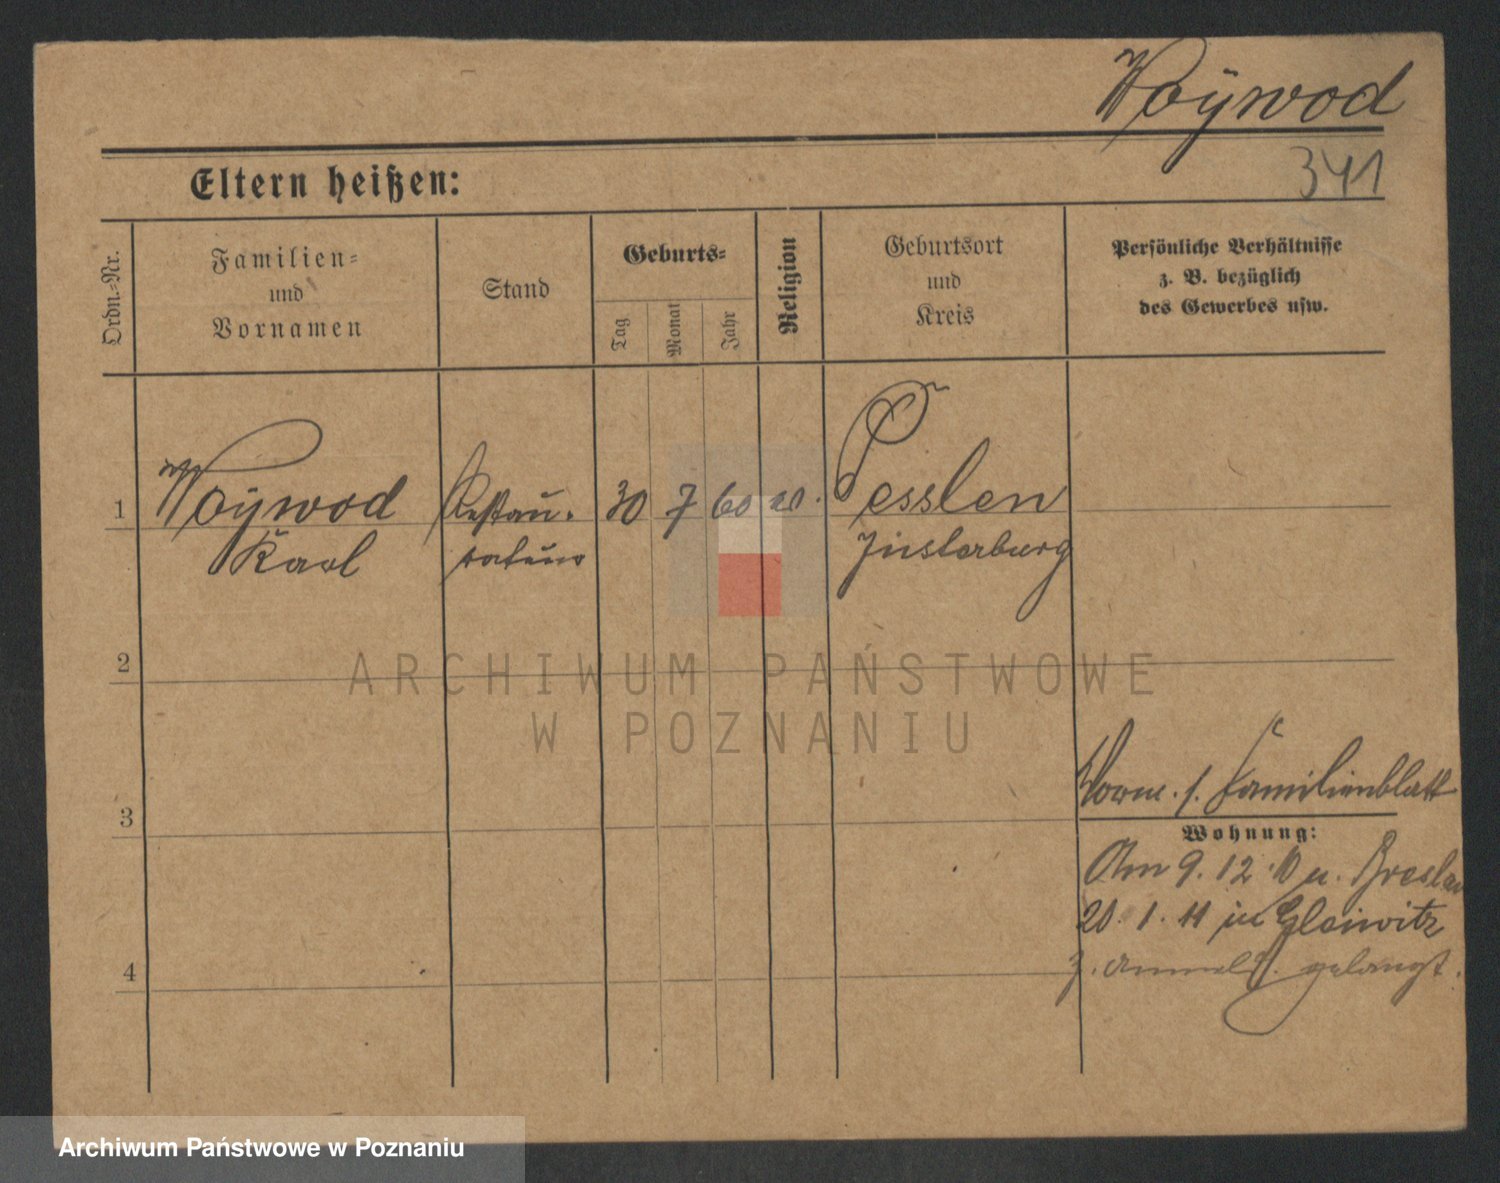 Woÿwod
341
Eltern heißen:
Ordn.=Nr.
Familien=
und
Vornamen
Stand
Geburts=
Tag
Monat
Jahr
Religion
Geburtsort
und
Kreis
Persönliche Verhältnisse
z. B. bezüglich
des Gewerbes usw.
1
Woÿwod
Karl
Restau-
rateur
30
7
60
Pesslen
Insterburg
2
ARCHIWUM PAŃSTWOWE
W POZNANIU
3
Vorm. s. Familienblatt
Wohnung:
Am 9. 12. 10 u. Breslau
20. 1. 11 in Gleiwitz
z. Anmeldg. gelangt.
4
Archiwum Państwowe w Poznaniu